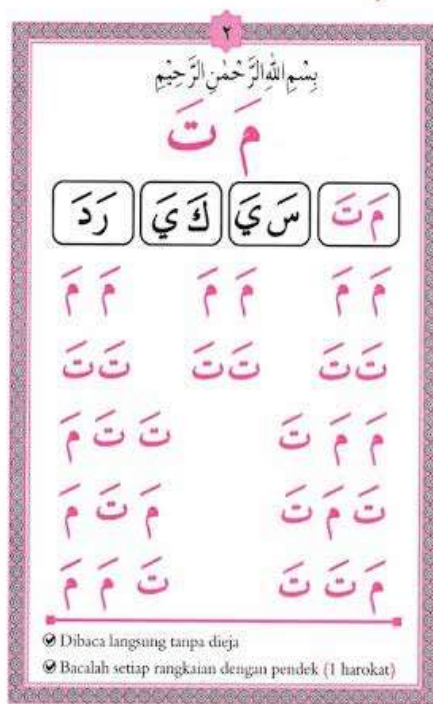 ٢
بِسْمِ اللهِ الرَّحْمٰنِ الرَّحِيْمِ
مَ تَ
مَ تَ سَ يَ كَ يَ رَ دَ
مَ مَ مَ مَ مَ مَ
تَ تَ تَ تَ تَ تَ
مَ مَ تَ تَ تَ مَ
تَ مَ تَ مَ تَ مَ
مَ تَ تَ تَ مَ مَ
Dibaca langsung tanpa dieja
Bacalah setiap rangkaian dengan pendek (1 harokat)